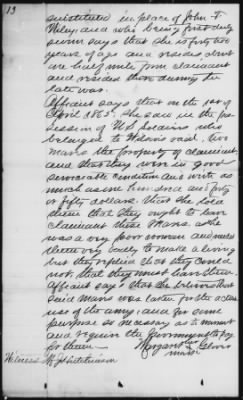 13
substituted in place of John F.
Wiley, and who being first duly
sworn says that she is forty two
years of age and resides about
one half mile from claimant
and resided there during the
late war.
Affiant says that on the 1st of
April 1865 she saw in the pos-
session of U.S. soldiers who
belonged to Wilson's raid, two
mares the property of claimant,
and that they were in good
serviceable condition and worth as
much as one hundred and forty
or fifty dollars. that she told
them that they ought to leave
claimant these mares as she
was a very poor woman and needed
them very badly to make a living
but they replied that they could
not, that they must have them.
Affiant says that she believes that
said mares was taken for the actual
use of the army, and for some
purpose so necessary as to
and require the Government to pay
for them.
Margaret her
mark
Witness